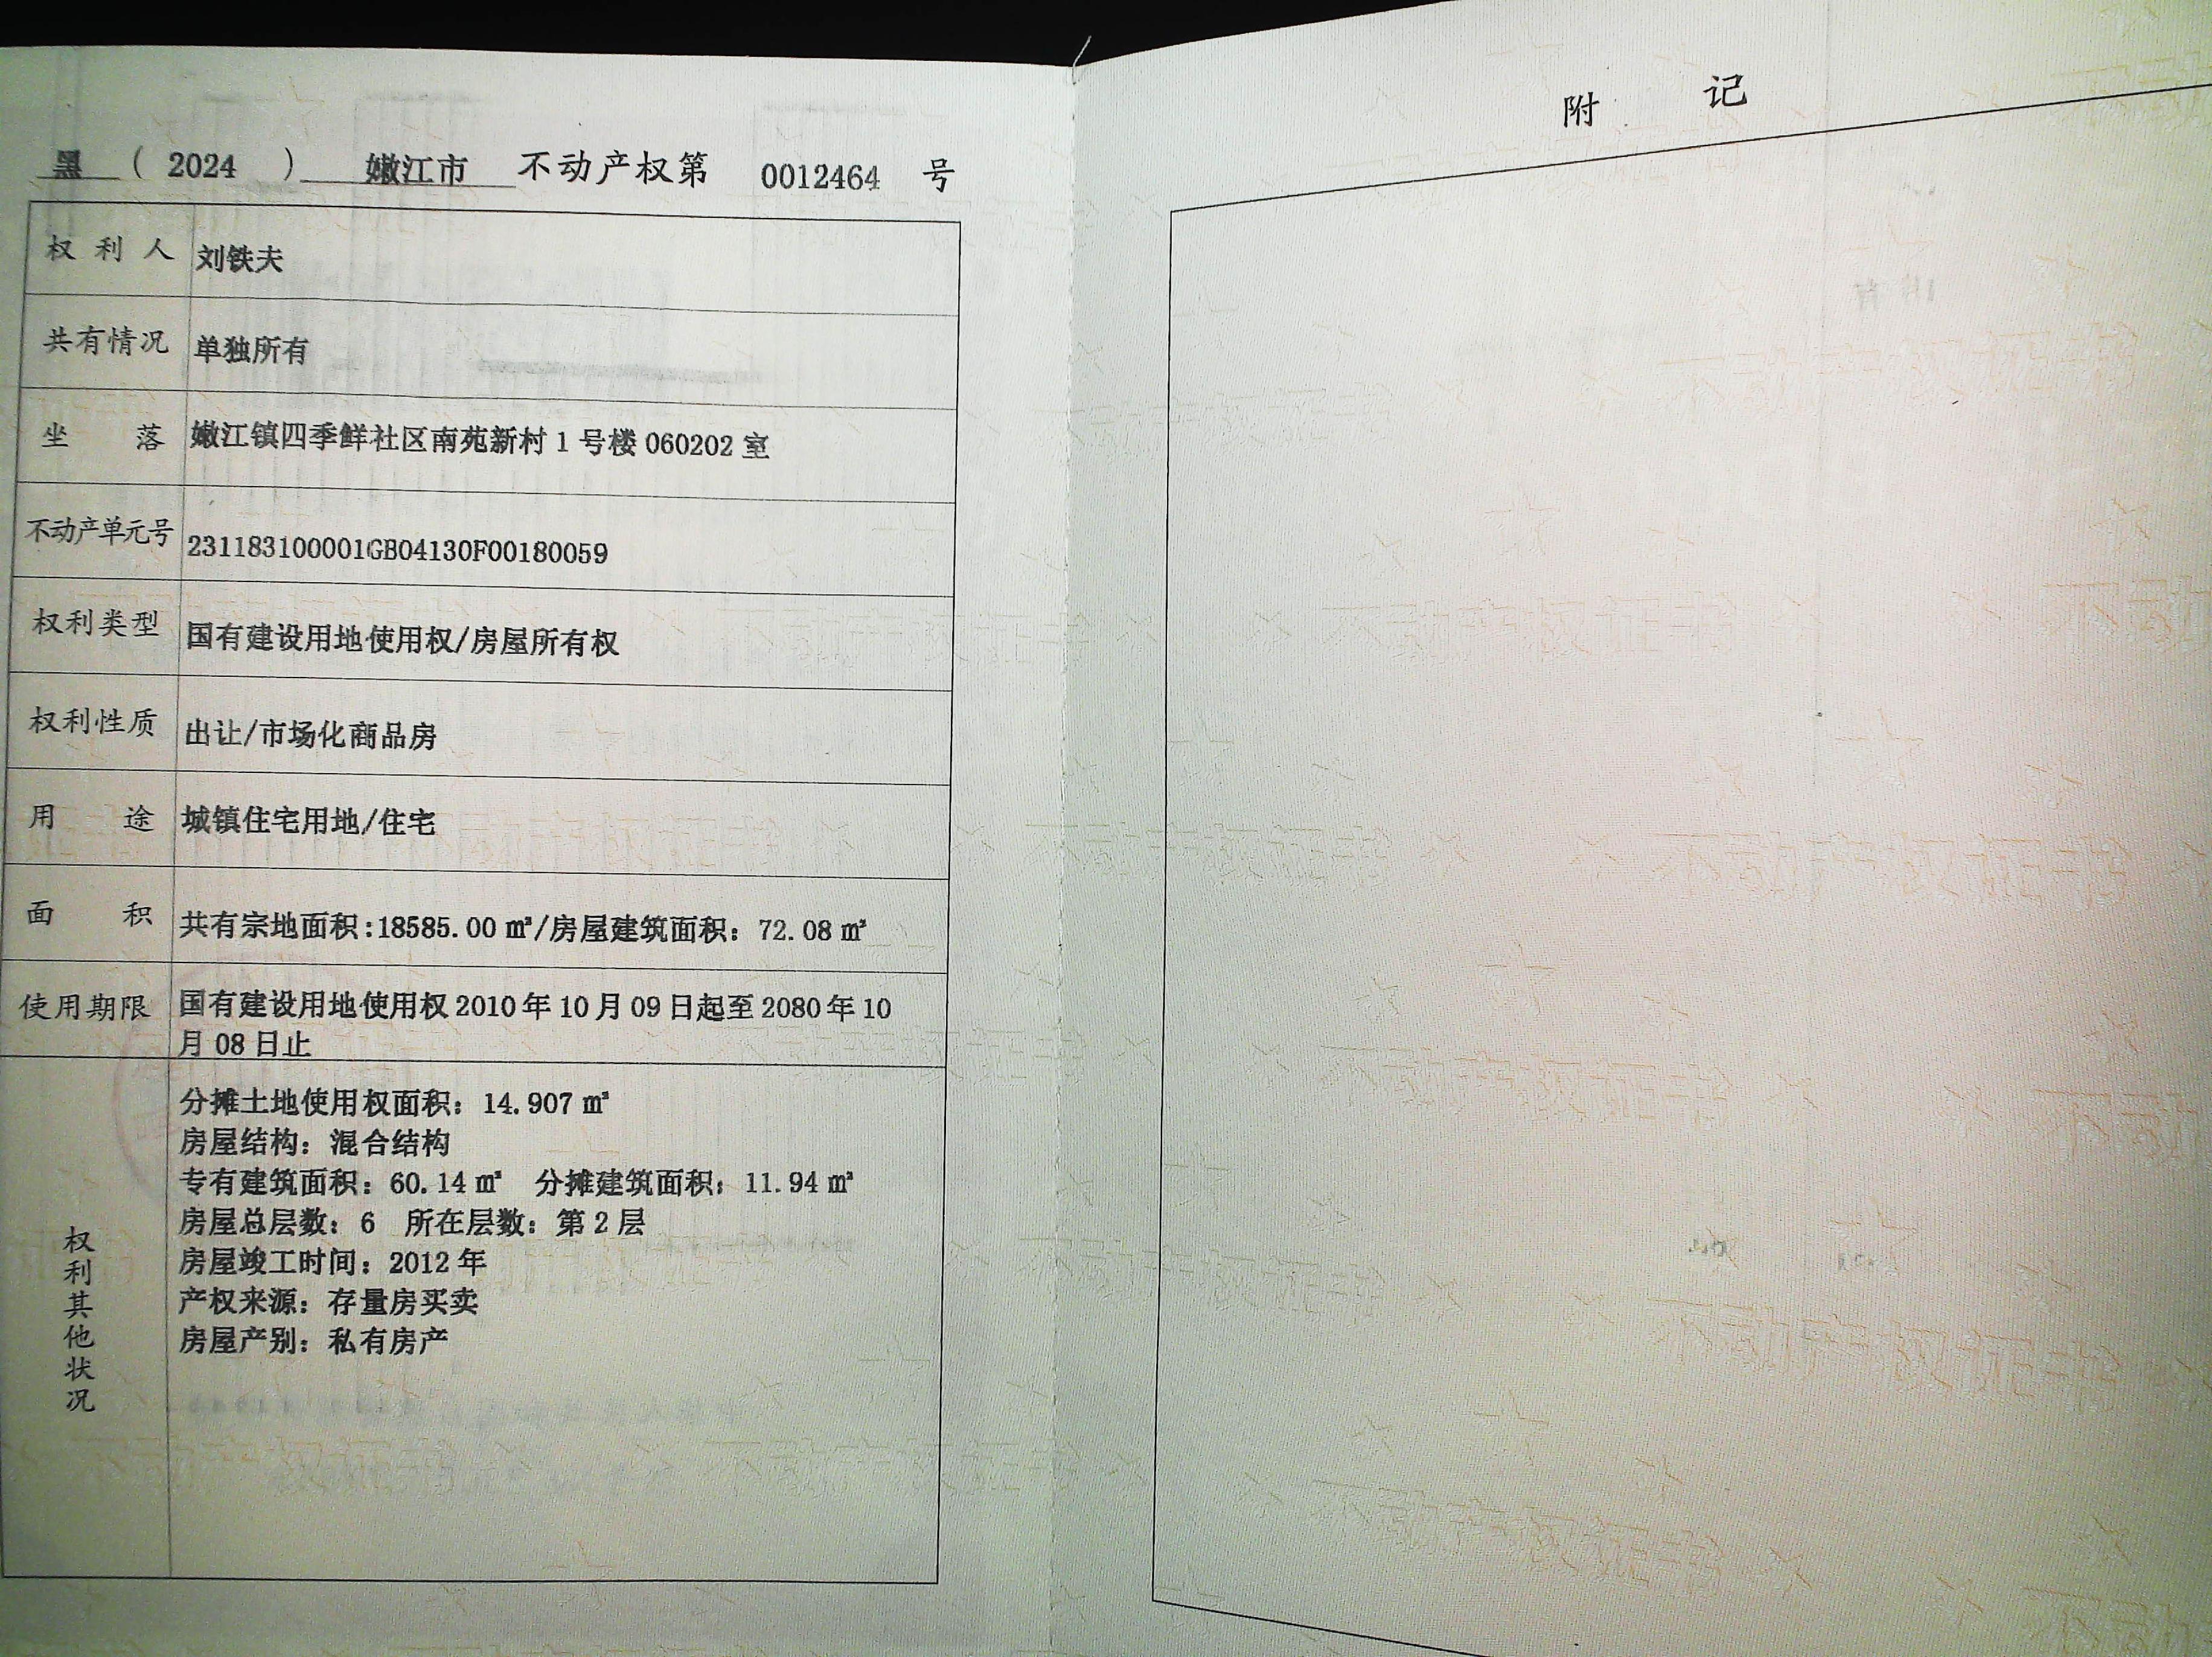 黑 ( 2024 ) 嫩江市 不动产权第 0012464 号
权利人 刘铁夫
共有情况 单独所有
坐落 嫩江镇四季鲜社区南苑新村 1 号楼 060202 室
不动产单元号 231183100001GB04130F00180059
权利类型 国有建设用地使用权/房屋所有权
权利性质 出让/市场化商品房
用途 城镇住宅用地/住宅
面积 共有宗地面积:18585.00 ㎡/房屋建筑面积: 72.08 ㎡
使用期限 国有建设用地使用权 2010 年 10 月 09 日起至 2080 年 10
月 08 日止
权利其他状况
分摊土地使用权面积: 14.907 ㎡
房屋结构: 混合结构
专有建筑面积: 60.14 ㎡ 分摊建筑面积: 11.94 ㎡
房屋总层数: 6 所在层数: 第 2 层
房屋竣工时间: 2012 年
产权来源: 存量房买卖
房屋产别: 私有房产
附 记